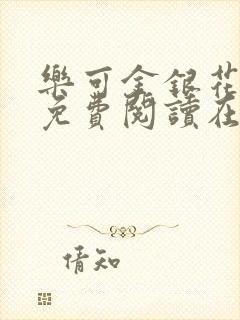 樂可金銀花
免費閱讀在
倩知